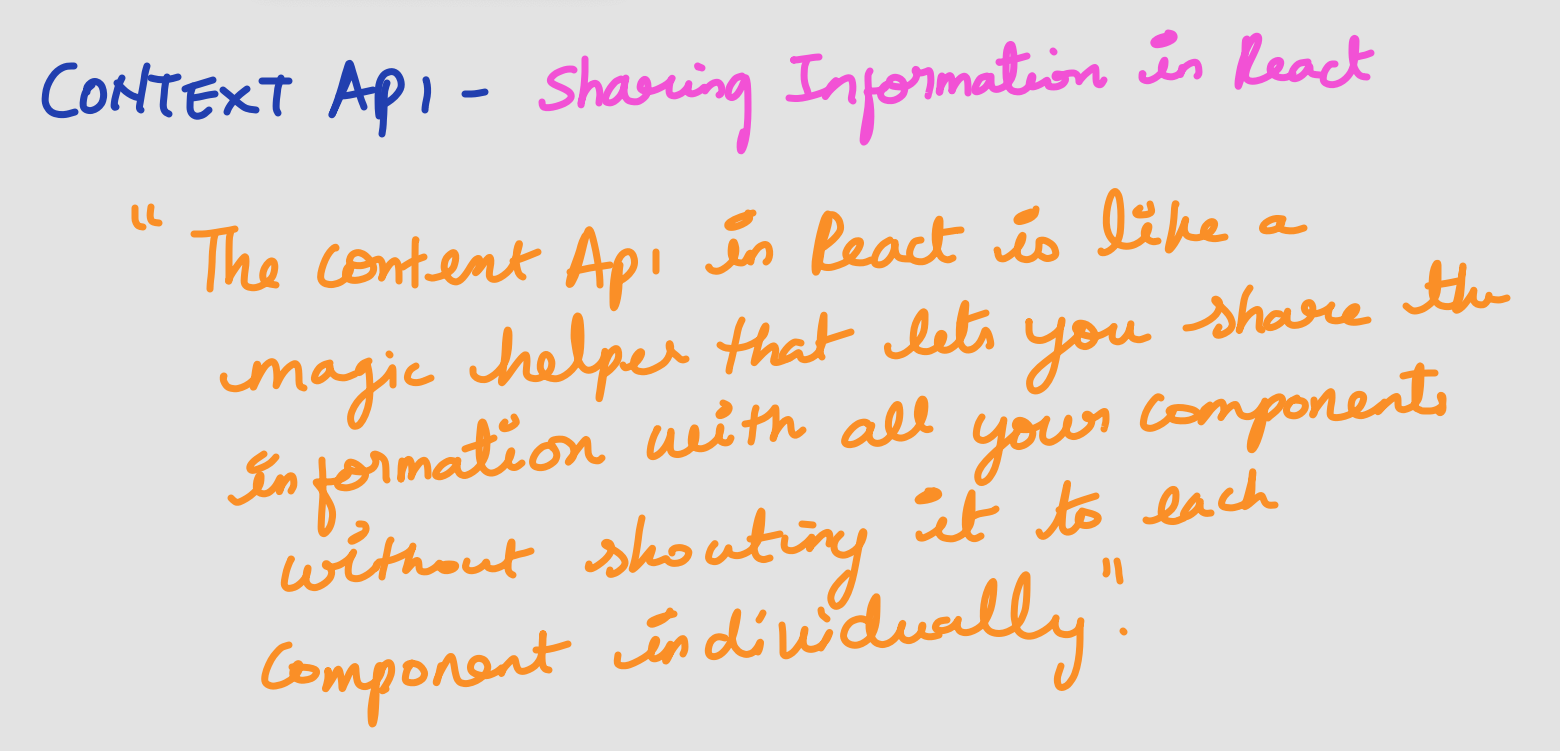 CONTEXT API - Sharing Information in React
"The content API in React is like a
magic helper that lets you share the
information with all your components
without shouting it to each
component individually".